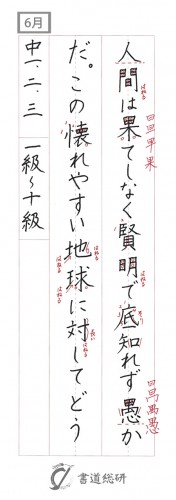 6月
人間は果てしなく賢明で底知れず愚か
だ。この懐れやすい地球に対してどう
中一、二、三 一級〜十級
書道総研